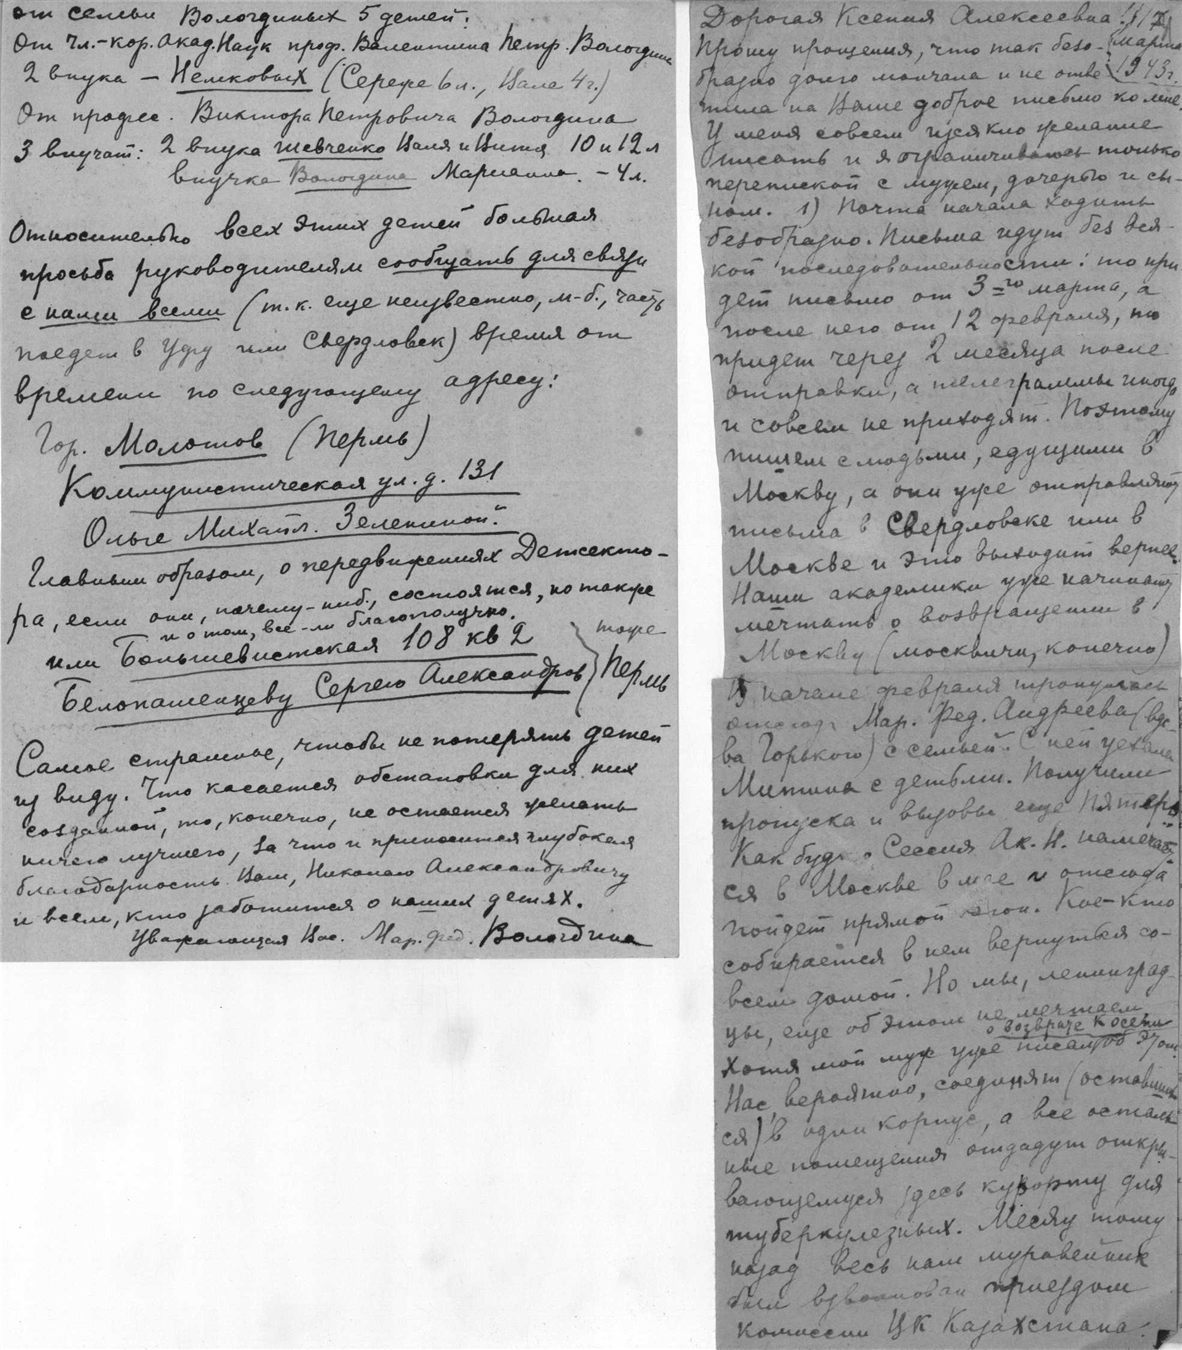 от семьи Вологдиных 5 детей:
От Чл.-кор. Акад. Наук проф. Валентина Петр. Вологдина
2 внука – Немковых (Сереже 6 л., Вале 4 г.)
От профес. Виктора Петровича Вологдина
3 внучат: 2 внука Шевченко Валя и Витя 10 и 12 л
внучка Вологдина Марианна. – 4 л.
Относительно всех этих детей большая
просьба руководителям сообщать для связи
с нами всеми (т.к. еще неизвестно, м-б., часть
поедет в Уфу или Свердловск) время от
времени по следующему адресу:
Гор. Молотов (Пермь)
Коммунистическая ул. д. 131
Ольге Михайл. Зелениной.
Главным образом, о передвижениях Детсекто-
ра, если они, почему-ниб., состоятся, но также
и о том, все-ли благополучно.
или Большевистская 108 кв 2
Белопашенцеву Сергею Александров
тоже
Пермь
Самое страшное, чтобы не потерять детей
из виду. Что касается обстановки для них
созданной, то, конечно, не остается желать
ничего лучшего, за что и приносится глубокая
благодарность Вам, Николаю Александровичу
и всем, кто заботится о наших детях.
Уважающая Вас. Мар. Фед. Вологдина
Дорогая Ксения Алексеевна!
Прошу прощения, что так безо-
марта
1943 г.
бразно долго молчала и не отве-
тила на Ваше доброе письмо ко мне.
У меня совсем иссякло желание
писать и я ограничиваюсь только
перепиской с мужем, дочерью и сы-
ном. 1) Почта начала ходить
безобразно. Письма идут без вся-
кой последовательности: то при
дет письмо от 3-го марта, а
после него от 12 февраля, то
придет через 2 месяца после
отправки, а телеграммы иногда
и совсем не приходят. Поэтому
пишем с людьми, едущими в
Москву, а они уже отправляют
письма в Свердловске или в
Москве и это выходит вернее.
Наши академики уже начинают
мечтать о возвращении в
Москву (москвичи, конечно)
В начале февраля тронулась
отсюда Мар. Фед. Андреева (вдо-
ва Горького) с семьей. С ней уехала
Митина с детьми. Получили
пропуска и вызовы еще пятеро
Как будто Сессия Ак. Н. намечает
ся в Москве в мае и отсюда
пойдет прямой вагон. Кое-кто
собирается в нем вернуться со-
всем домой. Но мы, ленинград-
цы, еще об этом не мечтаем
о возврате к осени
Хотя мой муж уже писал об этом.
Нас, вероятно, соединят (оставших
ся) в один корпус, а все осталь
ные помещения отдадут откры-
вающемуся здесь курорту для
туберкулезных. Месяц тому
назад весь наш муравейник
был взволнован приездом
комиссии ЦК Казахстана.